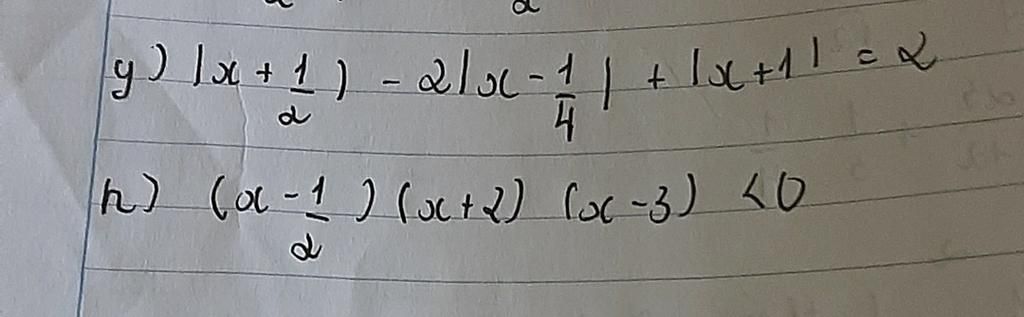 y) |x + 1/2) - 2|x - 1/4| + |x+1| = 2
h) (x - 1/2) (x+2) (x-3) < 0